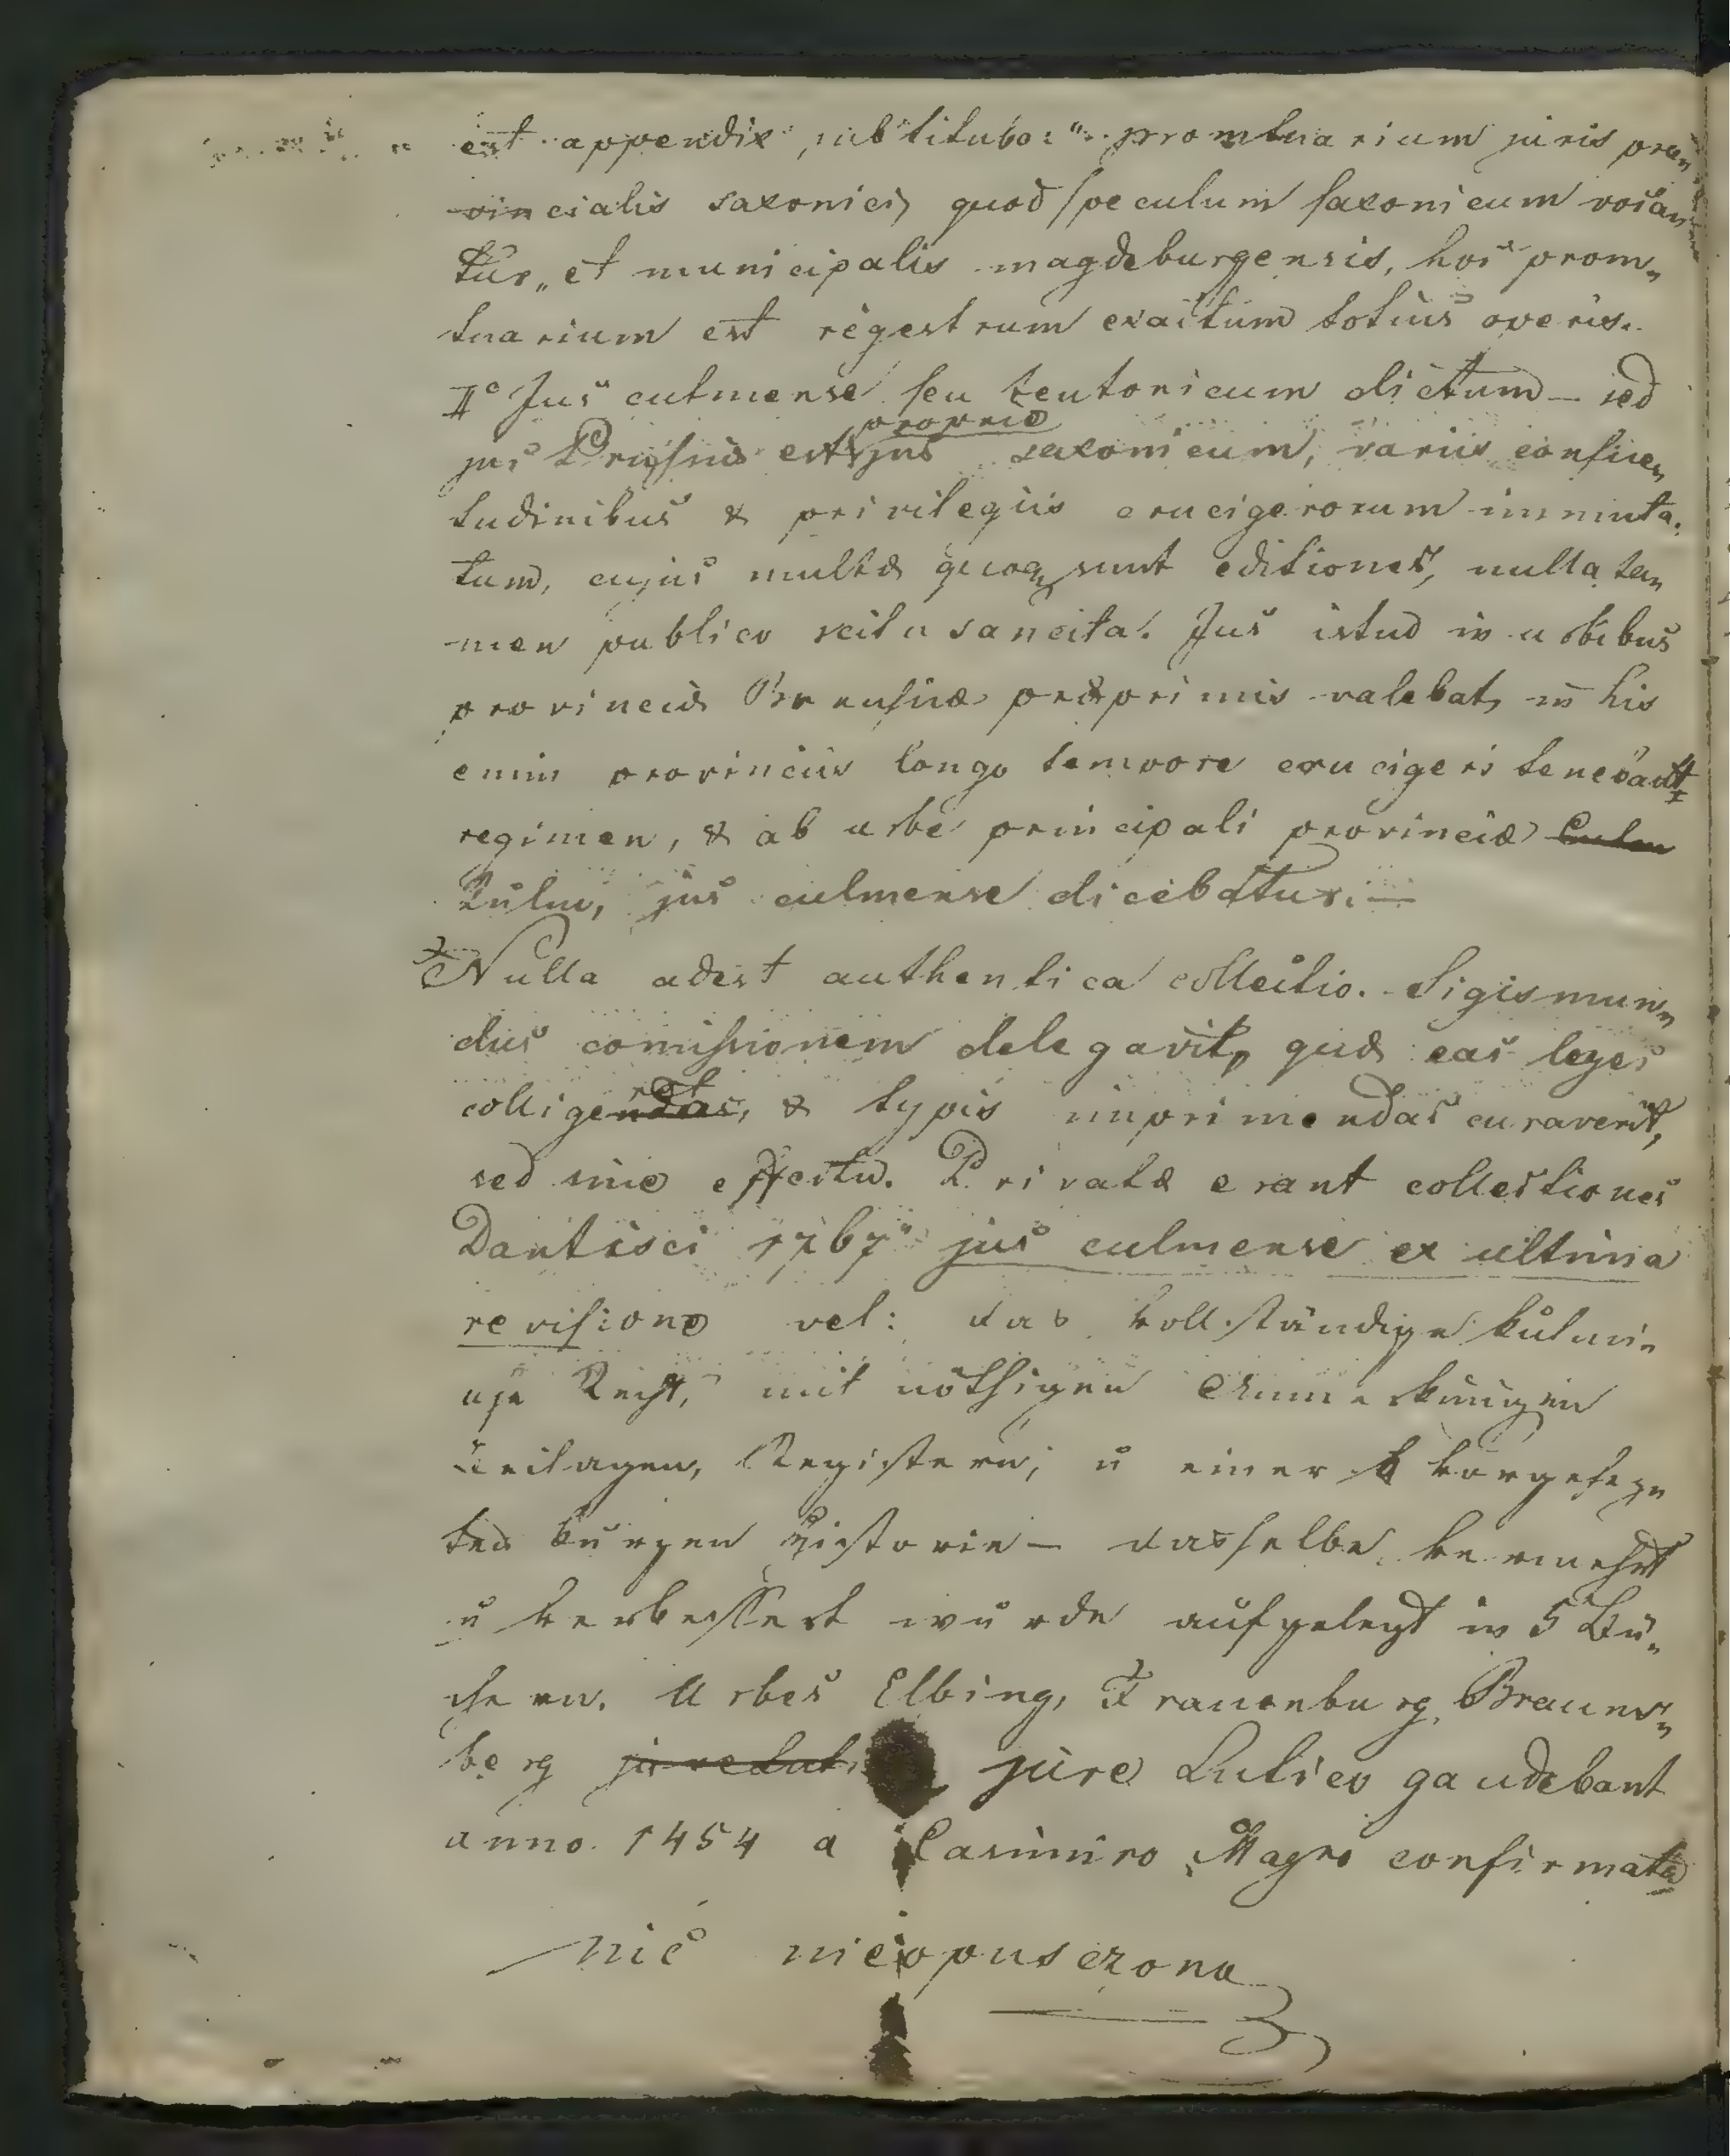 est appendix, sub titulo: "promtuarium juris pro„
vincialis saxonici, quod speculum saxonicum vocan
tur„ et municipalis magdeburgensis, hoc prom„
tuarium est regestrum exactum totius operis.
IIº Jus culmense seu teutonicum dictum — sed
proprie
jus Prussiis est jus saxonicum, variis consue„
tudinibus & privilegiis crucigerorum immuta„
tum, cujus multæ quoq sunt editiones, nulla ta„
men publico scitu sancita. Jus istud in urbibus
provinciæ Prussiæ præprimis valebat, in his
enim provinciis longo tempore crucigeri tenebant
regimen, & ab urbe principali provinciæ Culm
Kulm, jus culmense dicebatur. —
Nulla adest authentica collectio. Sigismun„
dus comissionem delegavit, quæ eas leges
ret
colligendas, & typis imprimendas curaverit,
sed sine effectu. Privatæ erant collectiones
Dantisci 1767 jus culmense ex ultima
revisione vel: das vollständige kulmi„
sche Recht, mit nöthigen Anmerkungen
Beilagen, Registern, u einer vorgesez„
ten kurzen Historie — dasselbe vermehrt
u verbessert wurde aufgelegt in 5 Bü„
chern. Urbes Elbing, Frauenburg, Brauns„
berg jure Lubico gaudebant
anno 1454 a Casimiro Magno confirmata
nic nieopusczono